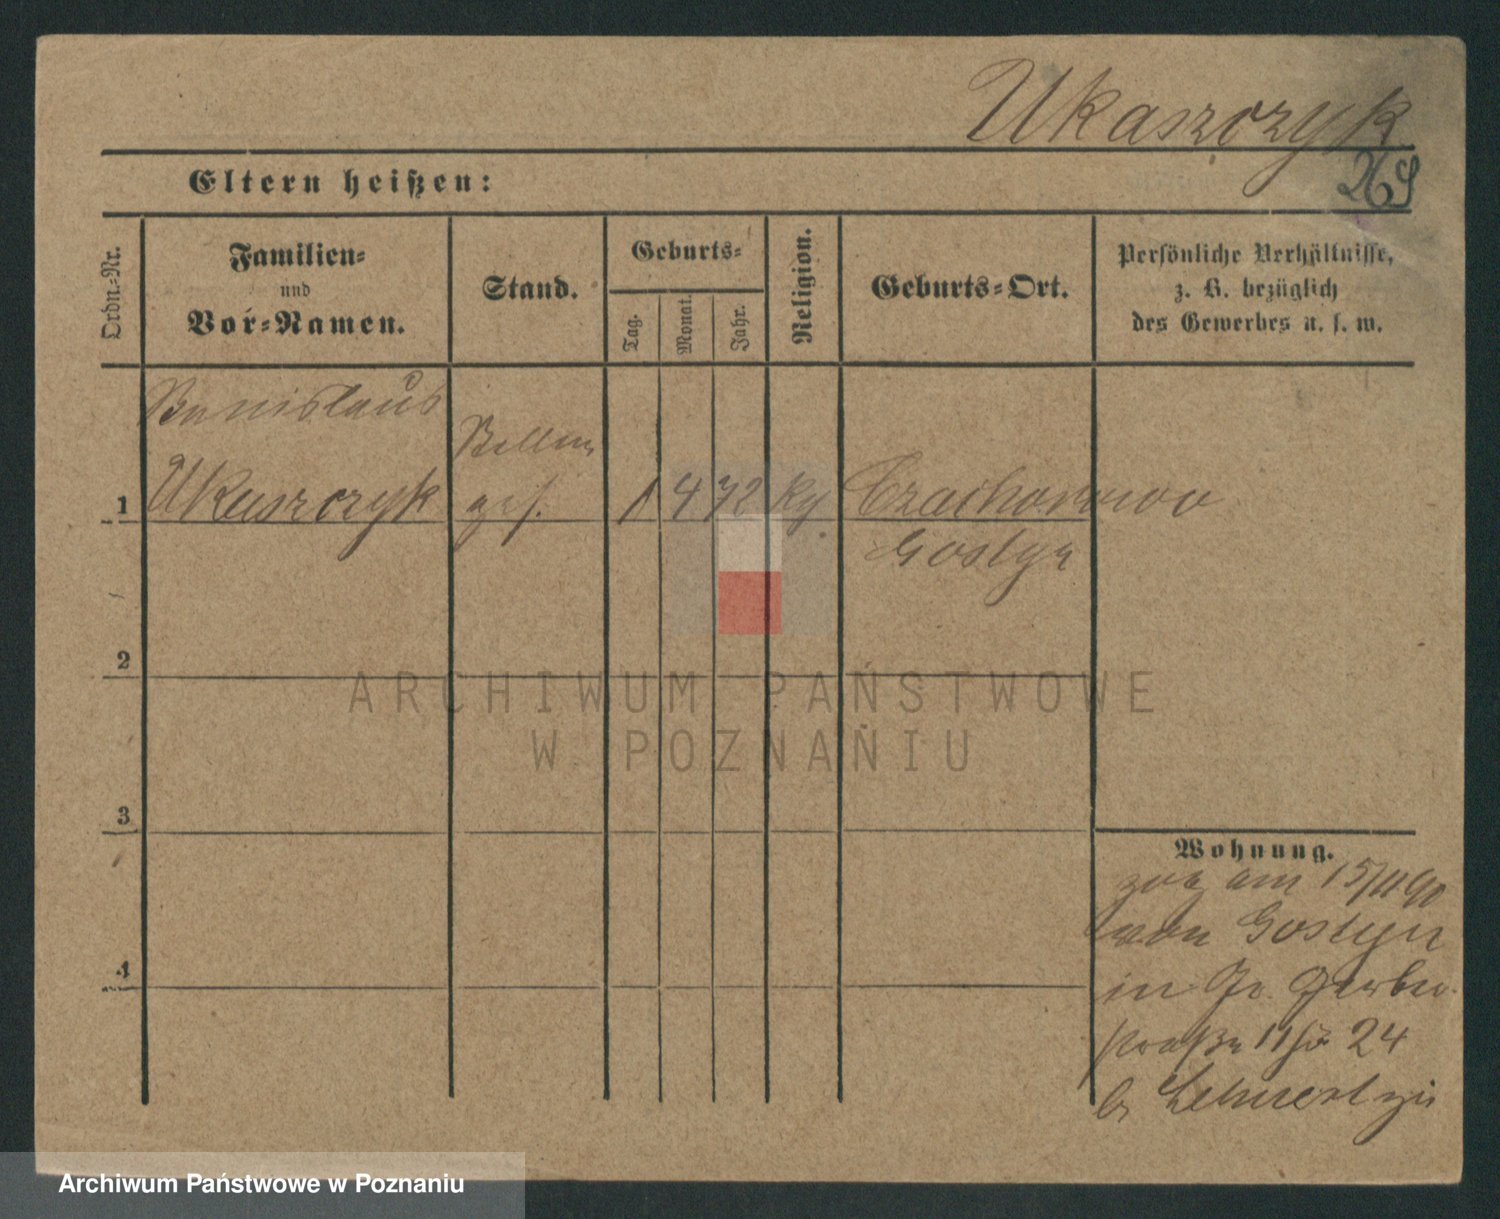 Ukaszczyk
Eltern heißen:
269
Ordn.-Nr.
Familien-
und
Vor-Namen.
Stand.
Geburts-
Tag.
Monat.
Jahr.
Religion.
Geburts-Ort.
Persönliche Verhältnisse,
z. B. bezüglich
des Gewerbes u. s. w.
Stanislaus
1 Ukaszczyk ges. 1 4 72 kg Czachorowo
Gostyn
2
3
4
ARCHIWUM PAŃSTWOWE
W POZNANIU
Wohnung.
zog am 15/11 90
von Gostyn
in Gr. Gerber-
straße 24
zu
Archiwum Państwowe w Poznaniu